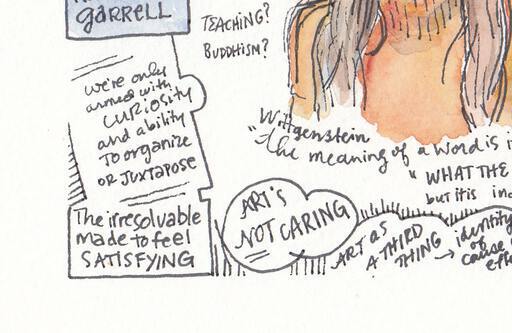 GARRELL
TEACHING?
BUDDHISM?
we're only
armed with
CURIOSITY
and ability
TO organize
OR JUXTAPOSE
The irresolvable
made to feel
SATISFYING
Wittgenstein
"The meaning of a word is i
"WHAT THE
but it is in
ART'S
NOT CARING
ART as
A THIRD
THING →
identity
of
cause
effe